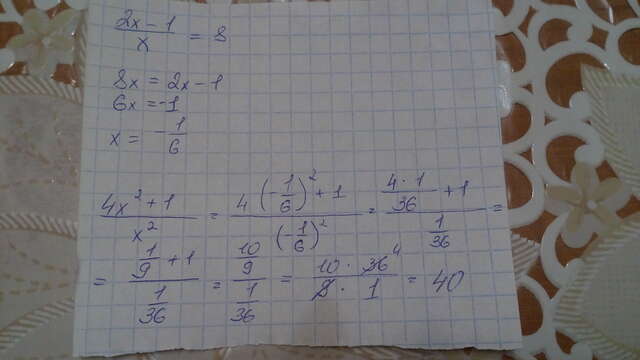 (2x - 1)/x = 8
8x = 2x - 1
6x = -1
x = -1/6
(4x² + 1)/x² = (4(-1/6)² + 1)/(-1/6)² = ((4 · 1)/36 + 1)/(1/36) =
= (1/9 + 1)/(1/36) = (10/9)/(1/36) = (10 · 36⁴)/(9 · 1) = 40